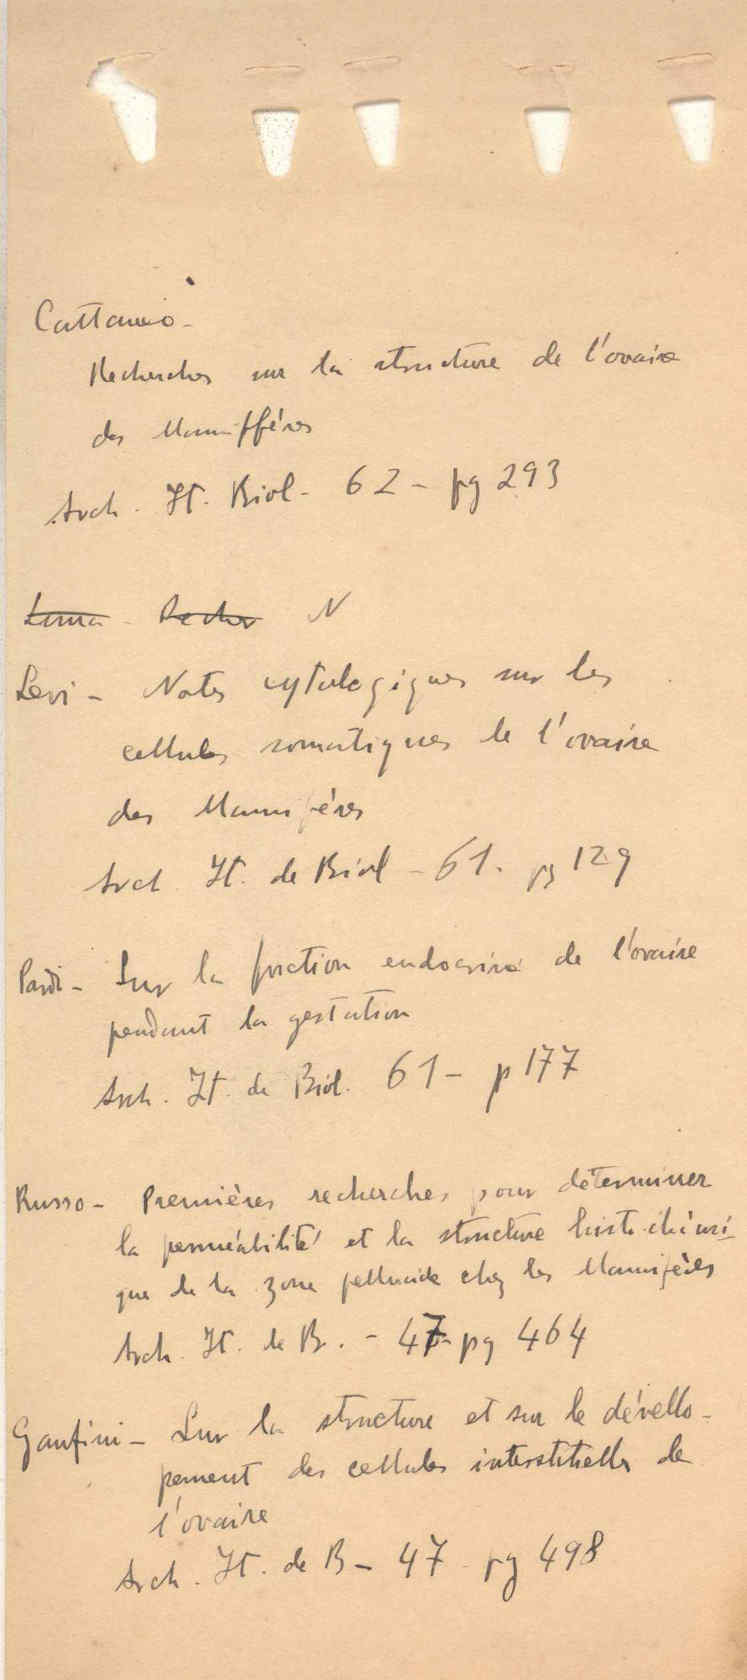 Cattaneo -
Recherches sur la structure de l'ovaire
des Mammifféres
Arch. It. Biol - 62 - pg 293
Luna - Recher N
Levi - Notes cytologiques sur les
cellules somatiques de l'ovaire
des Mammifères
Arch. It. de Biol - 61. pg 129
Pardi - Sur la fonction endocrine de l'ovaire
pendant la gestation
Arch. It. de Biol. 61 - p 177
Russo - Premières recherches pour déterminer
la perméabilité et la structure histo-chimi-
que de la zone pellucide chez les Mammifères
Arch. It. de B. - 47 - pg 464
Ganfini - Sur la structure et sur le dévello-
pement des cellules interstitielles de
l'ovaire
Arch. It. de B - 47 - pg 498